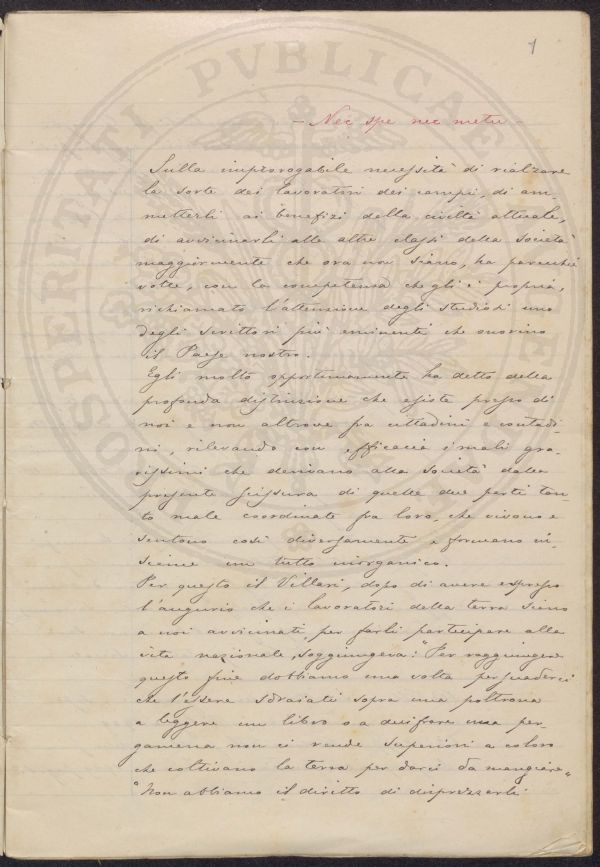 1
- Nec spe nec metu -
Sulla improrogabile necessità di rialzare
la sorte dei lavoratori dei campi, di am-
metterli ai benefizi della civiltà attuale,
di avvicinarli alle altre classi della società
maggiormente che ora non siano, ha parecchie
volte, con la competenza che gli è propria,
richiamato l'attenzione degli studiosi uno
degli scrittori più eminenti che onorino
il Paese nostro.
Egli molto opportunamente ha detto della
profonda distinzione che esiste presso di
noi e non altrove fra cittadini e contadi-
ni, rilevando con efficacia i mali gra-
vissimi che derivano alla società dalla
presente scissura di quelle due parti tan-
to male coordinate fra loro, che vivono e
sentono così diversamente e formano in-
sieme un tutto inorganico.
Per questo il Villari, dopo di avere espresso
l'augurio che i lavoratori della terra sieno
a noi avvicinati, per farli partecipare alla
vita nazionale, soggiungeva: "Per raggiungere
questo fine dobbiamo una volta persuaderci
che l'essere sdraiati sopra una poltrona
a leggere un libro o a decifrare una per-
gamena non ci rende superiori a coloro
che coltivano la terra per darci da mangiare"
"Non abbiamo il diritto di disprezzarli
PROSPERITATI PVBLICAE